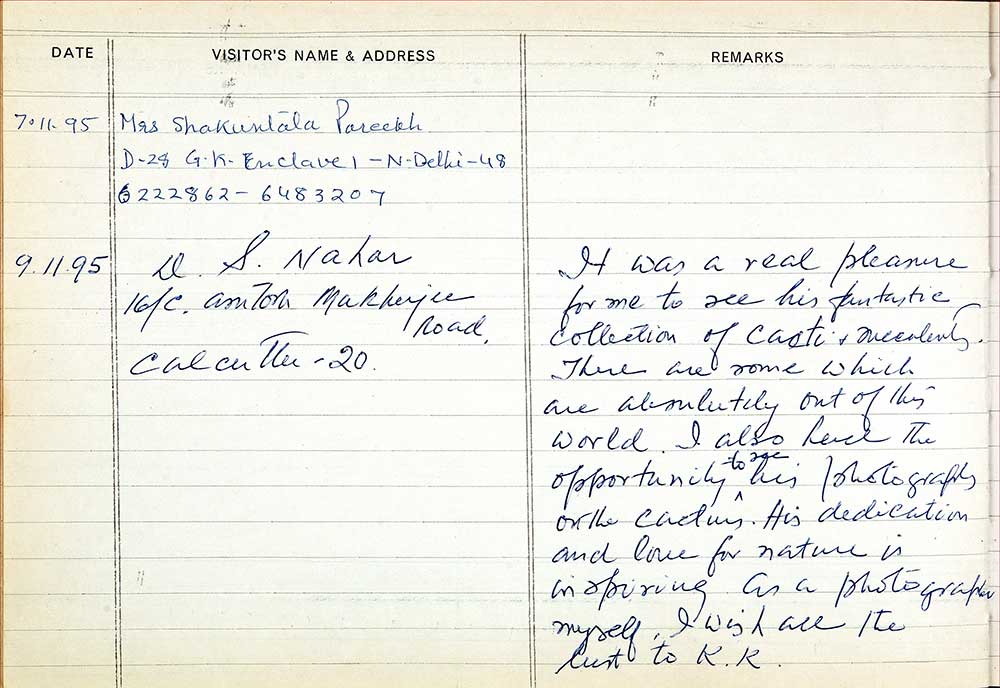 DATE VISITOR'S NAME & ADDRESS REMARKS
7.11.95 Mrs Shakuntala Pareekh
D-28 G.K. Enclave 1 - N. Delhi - 48
6222862 - 6483207
9.11.95 D. S. Nahar
16/C. Asutosh Mukherjee
Road,
Calcutta - 20.
It was a real pleasure
for me to see his fantastic
collection of Cacti & succulents.
There are some which
are absolutely out of this
world. I also had the
opportunity to see his photographs
on the cactus. His dedication
and love for nature is
inspiring. As a photographer
myself, I wish all the
best to K.K.